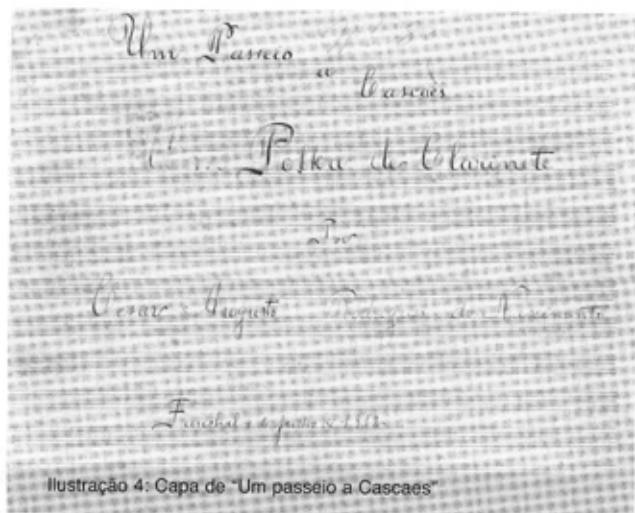 Um Passeio
a
Cascaes
Polka de Clarinete
Por
Cesar Auguste Rodrigues do Nascimento
Funchal
Ilustração 4: Capa de "Um passeio a Cascaes"